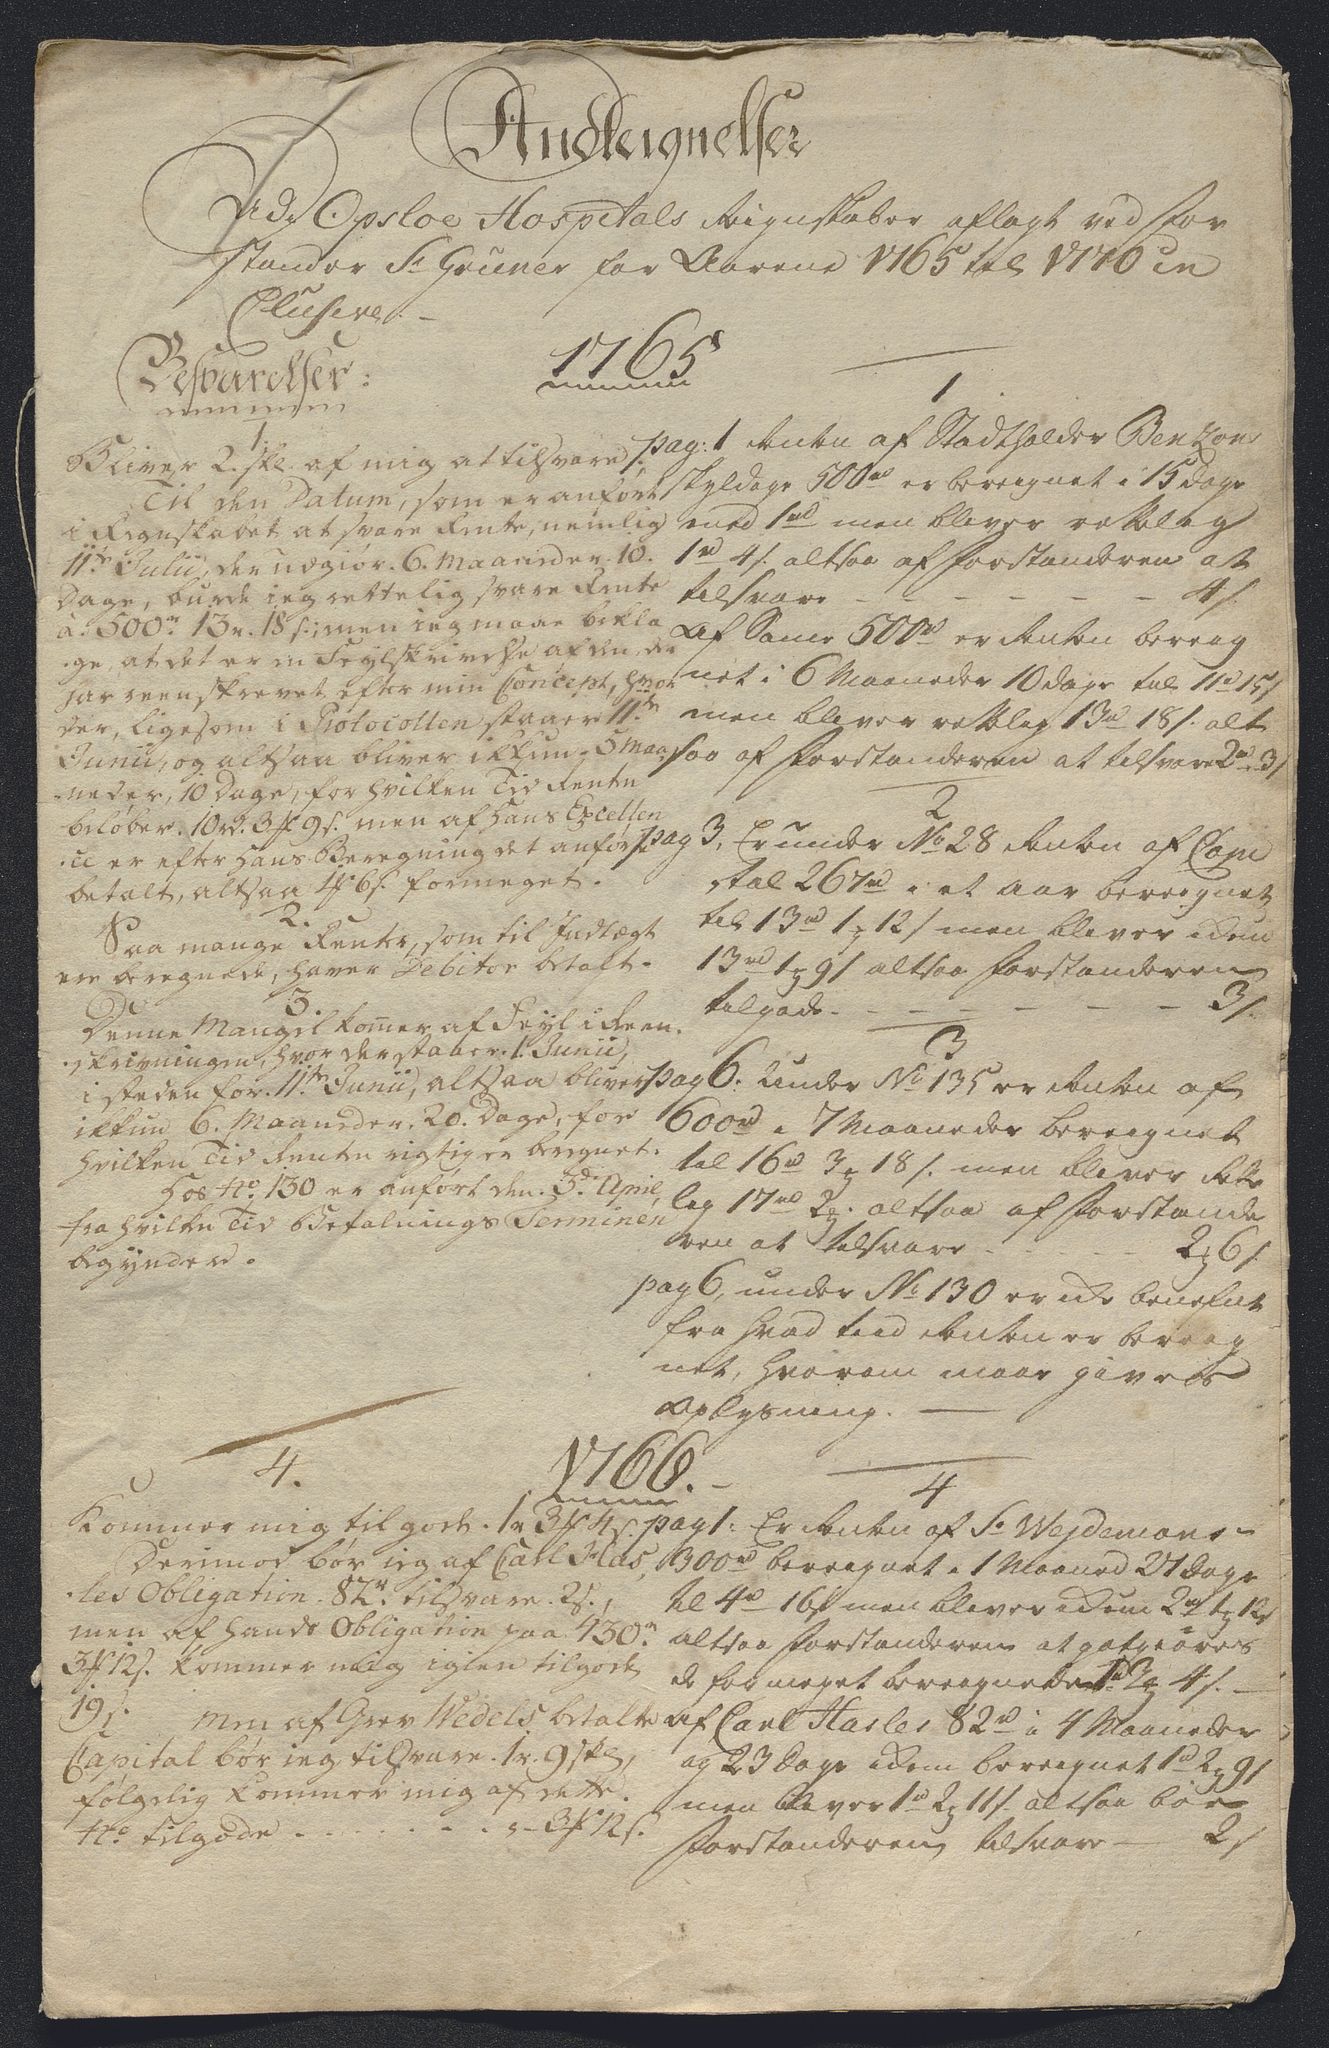 Andteignelser
Udj Opsloe Hospitals Reignskaber aflagt ved For
stander Sr Gruner for Aarene 1765 til 1770 in
Clusive. -
1765
Besvarelser:
1.
Bliver 2. skl. af mig at tilsvare.
Til den Datum, som er anført
i Regnskabet at svare Rente, nemlig
11te Julii, der udgiør. 6. Maaneder. 10.
Dage, burde ieg rettelig svare Rente
a. 500r. 13r. 18s.; men ieg maae bekla
-ge, at det er en Feylskrivelse af den, der
har reenskrevet efter min Concept, hvor
der, ligesom i Protocollen staaer 11te
Junii, og altsaa bliver ikkun. 5 Maa
-neder, 10 Dage, for hvilken Tid Renten
beløber. 10rd. 3 9s. men af Hans Excellen
-ce er efter Hans Beregning det anførte
betalt, altsaa 1 6s. formeget.
2.
Saa mange Renter, som til Indtægt
ere beregnede, haver Debitor betalt.
3.
Denne Mangel kommer af Feyl i Reen-
-skrivningen, hvor der staaer. 1. Junii,
i steden for. 11te Junii, altsaa bliver
ikkun 6. Maaneder. 20. Dage, for
hvilken Tid Renten rigtig er beregnet.
Hos No. 130 er anført den. 3de April,
fra hvilken Tid Betalnings Terminen
begynder.
1
pag: 1 Renten af Stadtholder Benzons
skyldige 500rd er bereignet i 15 Dage
med 1rd men bliver rettelig
1rd 4s. altsaa af Forstanderen at
tilsvare - - - - - - 4s.
Af Samme 500rd er Renten bereig
net i 6 Maaneder 10 dage til 11rd 15s
men bliver rettelig 13rd 18s. alt
saa af Forstanderen at tilsvare 2rd 3s
2
pag 3, Er under No 28 Renten af Capi
tal 267rd i et Aar bereignet
til 13rd 1 12s men bliver ikkun
13rd 1 9s altsaa Forstanderen
tilgode - - - - - - 3s.
3
pag 6: Under No 135 er Renten af
600rd i 7 Maaneder bereignet
til 16rd 3 18s. men bliver rette
lig 17rd 2. altsaa af Forstande
ren at tilsvare - - - - 2 6s.
pag 6, under No 130 er ikke benefnt
fra hvad tiid Renten er bereig
net, hvorom maae gives
Oplysning. -
1766. -
4.
Kommer mig til gode. 1r 3 4s.
Derimod bør ieg af Carl Has,
-les Obligation. 82r. tilsvare. 2s.,
men af hands Obligation paa 430r.
3 12s. kommer mig igien tilgode
19s.
Men af Grev Wedels betalte
Capital bør ieg tilsvare. 1r. 9 skl,
følgelig kommer mig af dette.
No. tilgode . . . . . - 3 12s.
4
pag 1: Er Renten af Sr Wejdemans
300rd bereignet i 1 Maaned 27 Dage
til 4rd 16s men bliver ikkun 2rd 1 12s
altsaa Forstanderen at godgiøres
de for meget bereignede 1rd 3 4s. -
af Carl Hasles 82rd i 4 Maaneder
og 23 Dage ikkun bereignet 1rd 2 9s
men bliver 1rd 2 11s. altsaa bør
Forstanderen tilsvare - 2s